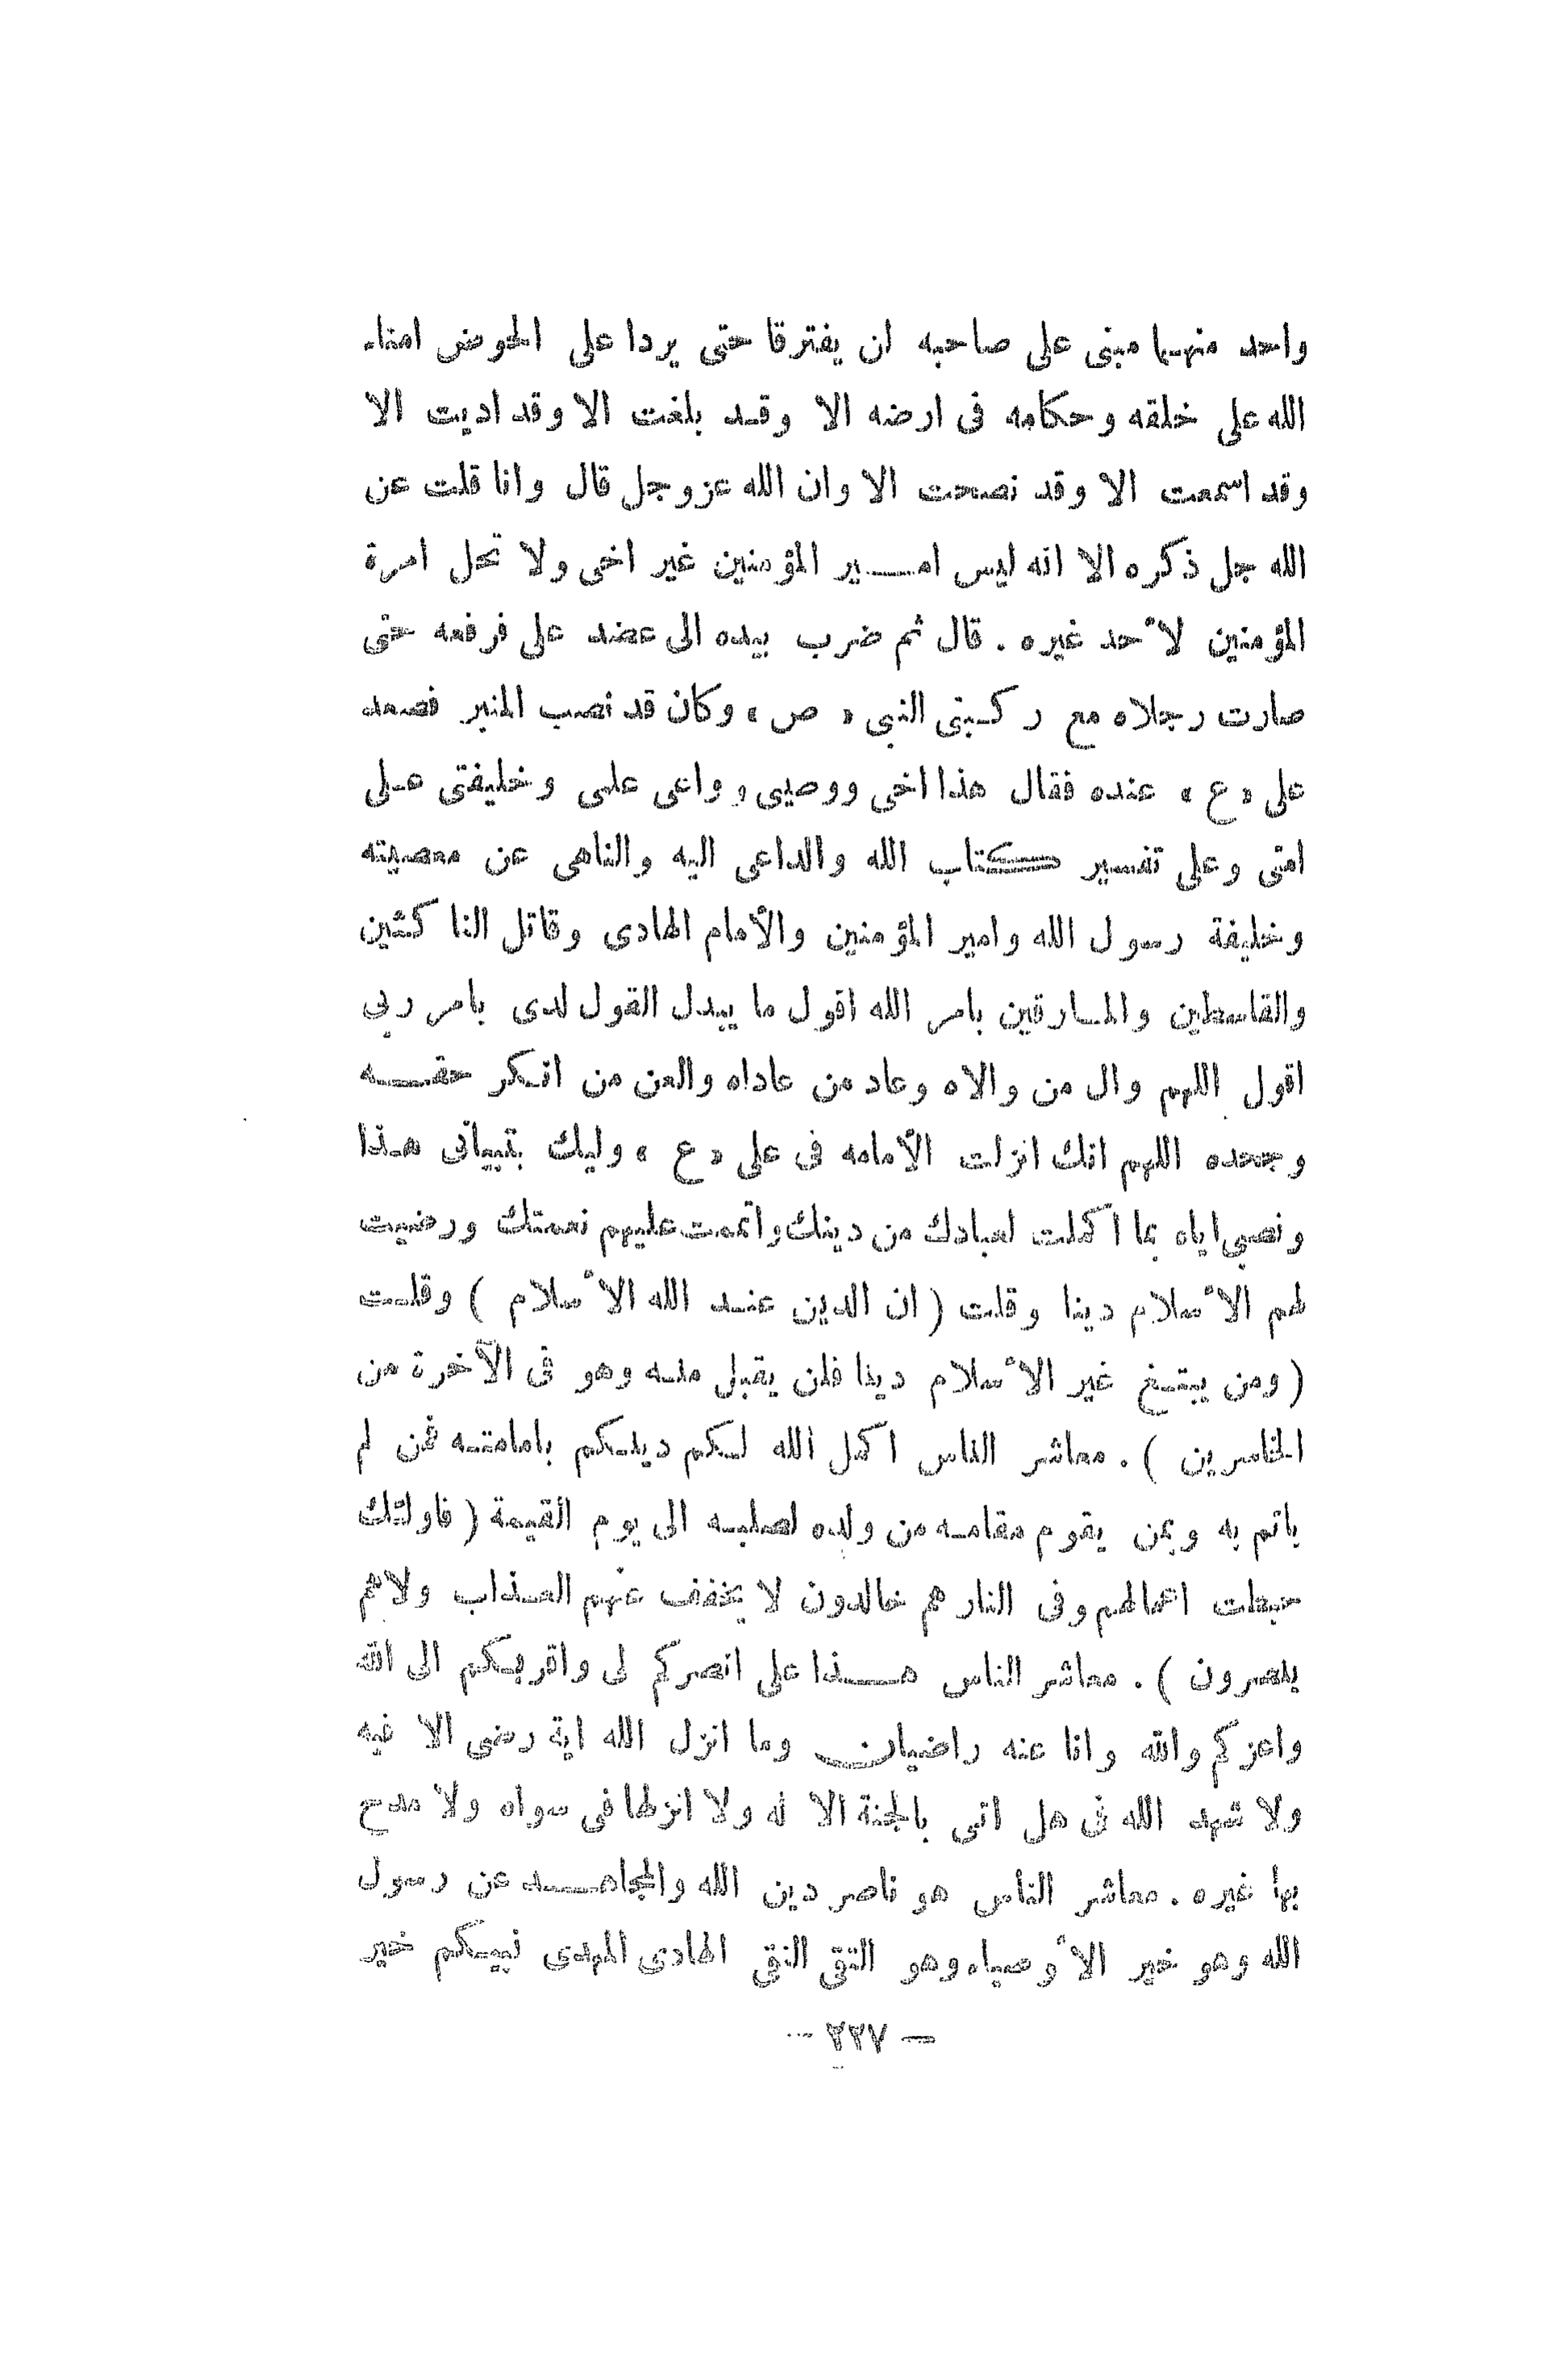 واحد منهما مبنى على صاحبه ان يفترقا حتى يردا على الحوض امناء
الله على خلقه وحكامه فى ارضه الا وقد بلغت الا وقد اديت الا
وقد اسمعت الا وقد نصحت الا وان الله عز وجل قال وانا قلت عن
الله جل ذكره الا انه ليس امير المؤمنين غير اخى ولا تحل امرة
المؤمنين لأحد غيره . قال ثم ضرب بيده الى عضد على فرفعه حتى
صارت رجلاه مع ركبتى النبى « ص » وكان قد نصب المنبر فصعد
على « ع » عنده فقال هذا اخى ووصيى وواعى علمى وخليفتى على
امتى وعلى تفسير كتاب الله والداعى اليه والناهى عن معصيته
وخليفة رسول الله وامير المؤمنين والأمام الهادى وقاتل الناكثين
والقاسطين والمارقين بامر الله اقول ما يبدل القول لدى بامر ربى
اقول اللهم وال من والاه وعاد من عاداه والعن من انكر حقه
وجحده اللهم انك انزلت الأمامه فى على « ع » وليك بتبيانى هذا
ونصبى اياه بما اكملت لعبادك من دينك واتممت عليهم نعمتك ورضيت
لهم الأسلام دينا وقلت ( ان الدين عند الله الأسلام ) وقلت
( ومن يبتغ غير الأسلام دينا فلن يقبل منه وهو فى الآخرة من
الخاسرين ) . معاشر الناس اكمل الله لكم دينكم بامامته فمن لم
ياتم به وبمن يقوم مقامه من ولده لصلبه الى يوم القيمة ( فاولئك
حبطت اعمالهم وفى النار هم خالدون لا يخفف عنهم العذاب ولاهم
ينصرون ) . معاشر الناس هذا على انصركم لى واقربكم الى الله
واعزكم والله وانا عنه راضيان وما انزل الله اية رضى الا فيه
ولا شهد الله فى هل اتى بالجنة الا له ولا انزلها فى سواه ولا مدح
بها غيره . معاشر الناس هو ناصر دين الله والمجاهد عن رسول
الله وهو خير الأوصياء وهو التقى النقى الهادى المهدى نبيكم خير
— ٢٢٧ —